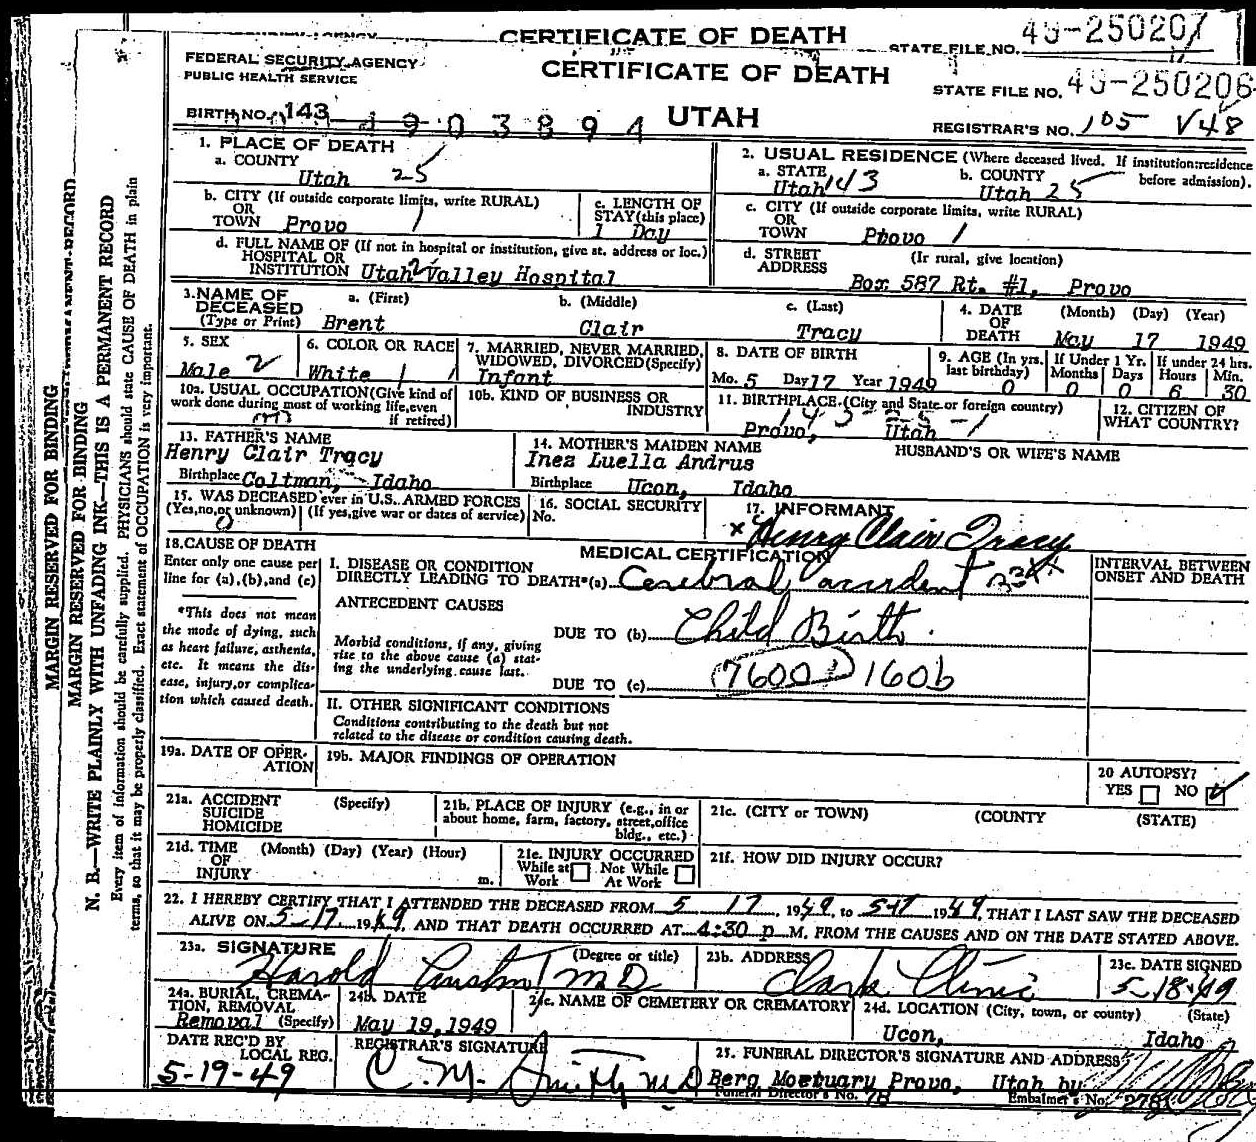 CERTIFICATE OF DEATH
STATE FILE NO. 49-250207
FEDERAL SECURITY AGENCY
PUBLIC HEALTH SERVICE
CERTIFICATE OF DEATH
STATE FILE NO. 49-250206
BIRTH NO. 143
UTAH
REGISTRAR'S NO. 105 V48
1. PLACE OF DEATH
a. COUNTY
Utah 25
2. USUAL RESIDENCE (Where deceased lived. If institution:residence before admission).
a. STATE
Utah 143
b. COUNTY
Utah 25
b. CITY (If outside corporate limits, write RURAL)
OR
TOWN Provo 1
c. LENGTH OF
STAY (this place)
1 Day
c. CITY (If outside corporate limits, write RURAL)
OR
TOWN Provo 1
d. FULL NAME OF (If not in hospital or institution, give st. address or loc.)
HOSPITAL OR
INSTITUTION Utah Valley Hospital
2
d. STREET
ADDRESS
(Ir rural, give location)
Box 587 Rt. #1, Provo
3. NAME OF
DECEASED
(Type or Print)
a. (First)
Brent
b. (Middle)
Clair
c. (Last)
Tracy
4. DATE
OF
DEATH
(Month) (Day) (Year)
May 17 1949
5. SEX
Male 2
6. COLOR OR RACE
White 1
7. MARRIED, NEVER MARRIED,
WIDOWED, DIVORCED (Specify)
Infant
8. DATE OF BIRTH
Mo. 5 Day 17 Year 1949
9. AGE (In yrs.
last birthday)
0
If Under 1 Yr.
Months Days
0 0
If under 24 hrs.
Hours Min.
6 30
10a. USUAL OCCUPATION (Give kind of
work done during most of working life, even
if retired)
10b. KIND OF BUSINESS OR
INDUSTRY
11. BIRTHPLACE (City and State or foreign country)
143-25-1
Provo, Utah
12. CITIZEN OF
WHAT COUNTRY?
13. FATHER'S NAME
Henry Clair Tracy
Birthplace Coltman, Idaho
14. MOTHER'S MAIDEN NAME
Inez Luella Andrus
Birthplace Ucon, Idaho
HUSBAND'S OR WIFE'S NAME
15. WAS DECEASED ever in U.S. ARMED FORCES
(Yes, no, or unknown) (If yes, give war or dates of service)
0
16. SOCIAL SECURITY
No.
17. INFORMANT
x Henry Clair Tracy
18. CAUSE OF DEATH
Enter only one cause per
line for (a), (b), and (c)
*This does not mean
the mode of dying, such
as heart failure, asthenia,
etc. It means the dis-
ease, injury, or complica-
tion which caused death.
MEDICAL CERTIFICATION
I. DISEASE OR CONDITION
DIRECTLY LEADING TO DEATH*(a) Cerebral accident
INTERVAL BETWEEN
ONSET AND DEATH
ANTECEDENT CAUSES
Morbid conditions, if any, giving
rise to the above cause (a) stat-
ing the underlying cause last.
DUE TO (b) Child Birth.
DUE TO (c)
II. OTHER SIGNIFICANT CONDITIONS
Conditions contributing to the death but not
related to the disease or condition causing death.
19a. DATE OF OPER-
ATION
19b. MAJOR FINDINGS OF OPERATION
20 AUTOPSY?
YES NO
21a. ACCIDENT
SUICIDE
HOMICIDE
(Specify)
21b. PLACE OF INJURY (e.g., in or
about home, farm, factory, street, office
bldg., etc.)
21c. (CITY or TOWN) (COUNTY) (STATE)
21d. TIME
OF
INJURY
(Month) (Day) (Year) (Hour)
m.
21e. INJURY OCCURRED
While at Not While
Work At Work
21f. HOW DID INJURY OCCUR?
22. I HEREBY CERTIFY THAT I ATTENDED THE DECEASED FROM 5 17, 1949, to 5-17 1949, THAT I LAST SAW THE DECEASED
ALIVE ON 5-17 1949, AND THAT DEATH OCCURRED AT 4:30 p M. FROM THE CAUSES AND ON THE DATE STATED ABOVE.
23a. SIGNATURE (Degree or title)
Harold Austin MD
23b. ADDRESS
Clark Clinic
23c. DATE SIGNED
5-18-49
24a. BURIAL, CREMA-
TION, REMOVAL
Removal (Specify)
24b. DATE
May 19, 1949
24c. NAME OF CEMETERY OR CREMATORY
24d. LOCATION (City, town, or county) (State)
Ucon, Idaho
DATE REC'D BY
LOCAL REG.
5-19-49
REGISTRAR'S SIGNATURE
C. M. Smith MD
25. FUNERAL DIRECTOR'S SIGNATURE AND ADDRESS
Berg Mortuary Provo, Utah by
Funeral Director's No. 78
Embalmer's No. 278
MARGIN RESERVED FOR BINDING
MARGIN RESERVED FOR BINDING
N. B.—WRITE PLAINLY WITH UNFADING INK—THIS IS A PERMANENT RECORD
Every item of information should be carefully supplied. PHYSICIANS should state CAUSE OF DEATH in plain
terms, so that it may be properly classified. Exact statement of OCCUPATION is very important.